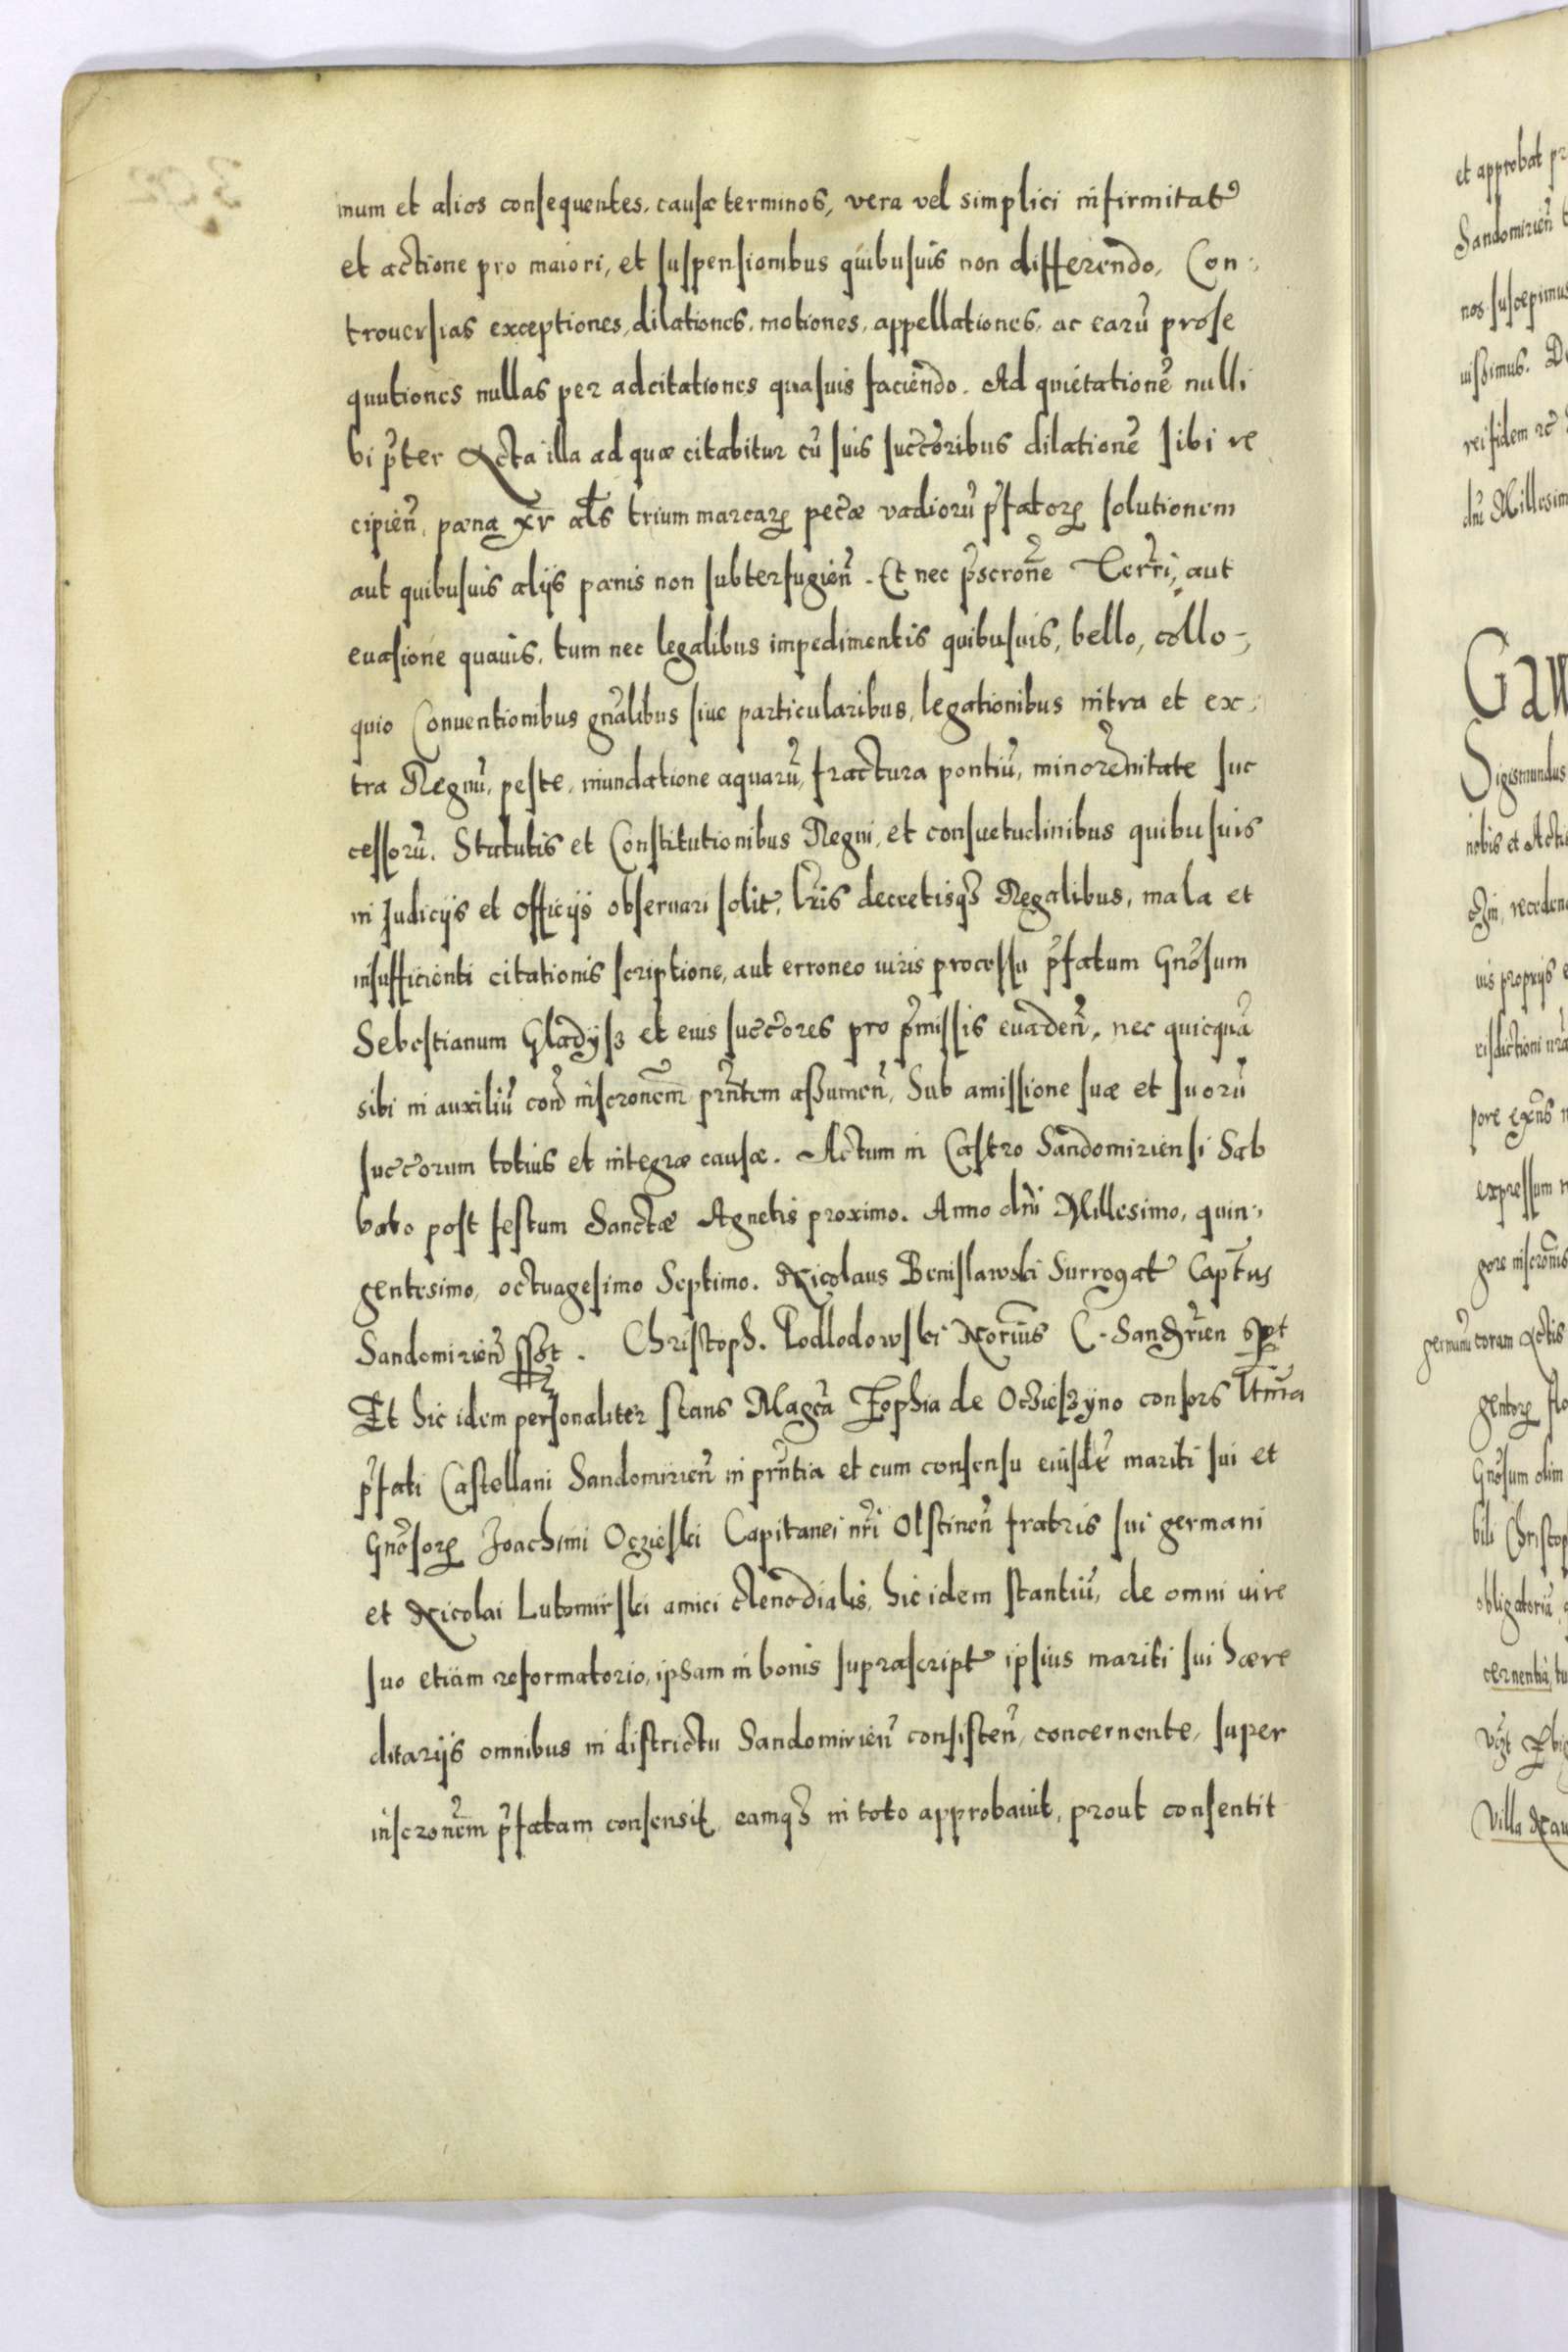 mum et alios consequentes, causæ terminos, vera vel simplici infirmitatꝰ
et actione pro maiori, et suspensionibus quibusuis non differendo, Con:
trouersias exceptiones, dilationes, motiones, appellationes, ac earū prose
quutiones nullas per adcitationes quasuis faciendo. Ad quietationē nulli
bi p̄ter Acta illa ad quæ citabitur cū suis succ̄oribus dilationē sibi re
cipien̄, pæna xv al̄s trium marcaꝝ pec̄æ vadiorū p̄fatoꝝ solutionem
aut quibusuis alijs pænis non subterfugien̄. Et nec p̄scron̄e Terr̄i, aut
euasione quauis, tum nec legalibus impedimentis quibusuis, bello, collo-
quio Conuentionibus gn̄alibus siue particularibus, legationibus intra et ex-
tra Regnū, peste, inundatione aquarū, fractura pontiū, minorennitate suc
cessorū. Statutis et Constitutionibus Regni, et consuetudinibus quibusuis
in Judicijs et Officijs obseruari solitꝰ, Lr̄is decretisqꝫ Regalibus, mala et
insufficienti citationis scriptione, aut erroneo iuris processu p̄fatum Gn̄osum
Sebestianum Gladysz et eius succ̄ores pro p̄missis euaden̄, nec quicquā
sibi in auxiliū con̄ inscron̄em pn̄tem assumen̄, Sub amissione suæ et suorū
succ̄orum totius et integræ causæ. Actum in Castro Sandomiriensi Sab
bato post festum Sanctæ Agnetis proximo. Anno dn̄i Millesimo, quin:
gentesimo, octuagesimo Septimo. Nicolaus Benislawski Surrogatꝰ Capt̄us
Sandomirien̄ sst. Christoph. Podlodowski Nor̄ius C. Sandr̄ien
Et hic idem personaliter stans Magc̄a Zophia de Oczieszyno consors
p̄fati Castellani Sandomirien̄ in prn̄tia et cum consensu eiusdē mariti sui et
Gn̄osoꝝ Joachimi Oczieski Capitanei nr̄i Olstinen̄ fratris sui germani
et Nicolai Lubomirski amici clenodialis, hic idem stantiū, de omni iure
suo etiam reformatorio, ipsam in bonis suprascriptꝰ ipsius mariti sui hære
ditarijs omnibus in districtu Sandomirien̄ consisten̄, concernente, super
inscron̄em p̄fatam consensit, eamqꝫ in toto approbauit, prout consentit
et approbat
Sandomirien̄
nos suscepimus
uissimus.
rei fidem
dn̄i Millesim
Gaw
Sigismundus
nobis et Actis
uis proprijs
expressum
coram Actis
Gn̄osum olim
bili Christop
obligatoriū
cernentia, tu
Villa